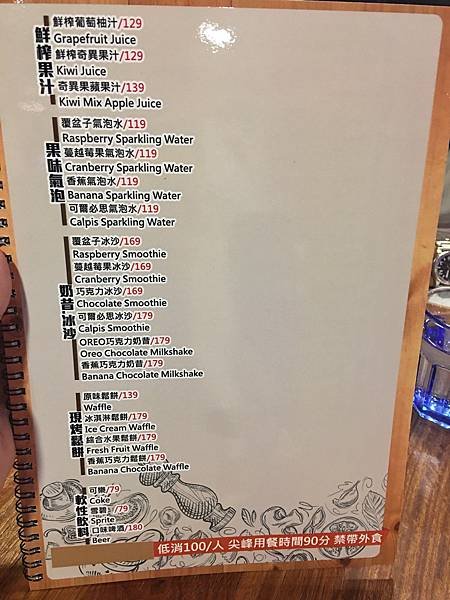 鮮榨果汁
鮮榨葡萄柚汁/129
Grapefruit Juice
鮮榨奇異果汁/129
Kiwi Juice
奇異果蘋果汁/139
Kiwi Mix Apple Juice
果味氣泡
覆盆子氣泡水/119
Raspberry Sparkling Water
蔓越莓果氣泡水/119
Cranberry Sparkling Water
香蕉氣泡水/119
Banana Sparkling Water
可爾必思氣泡水/119
Calpis Sparkling Water
奶昔冰沙
覆盆子冰沙/169
Raspberry Smoothie
蔓越莓冰沙/169
Cranberry Smoothie
巧克力冰沙/169
Chocolate Smoothie
可爾必思冰沙/179
Calpis Smoothie
OREO巧克力奶昔/179
Oreo Chocolate Milkshake
香蕉巧克力奶昔/179
Banana Chocolate Milkshake
現烤鬆餅
原味鬆餅/139
Waffle
冰淇淋鬆餅/179
Ice Cream Waffle
綜合水果鬆餅/179
Fresh Fruit Waffle
香蕉巧克力鬆餅/179
Banana Chocolate Waffle
軟性飲料
可樂/79
Coke
雪碧/79
Sprite
口味啤酒/180
Beer
低消100/人 尖峰用餐時間90分 禁帶外食